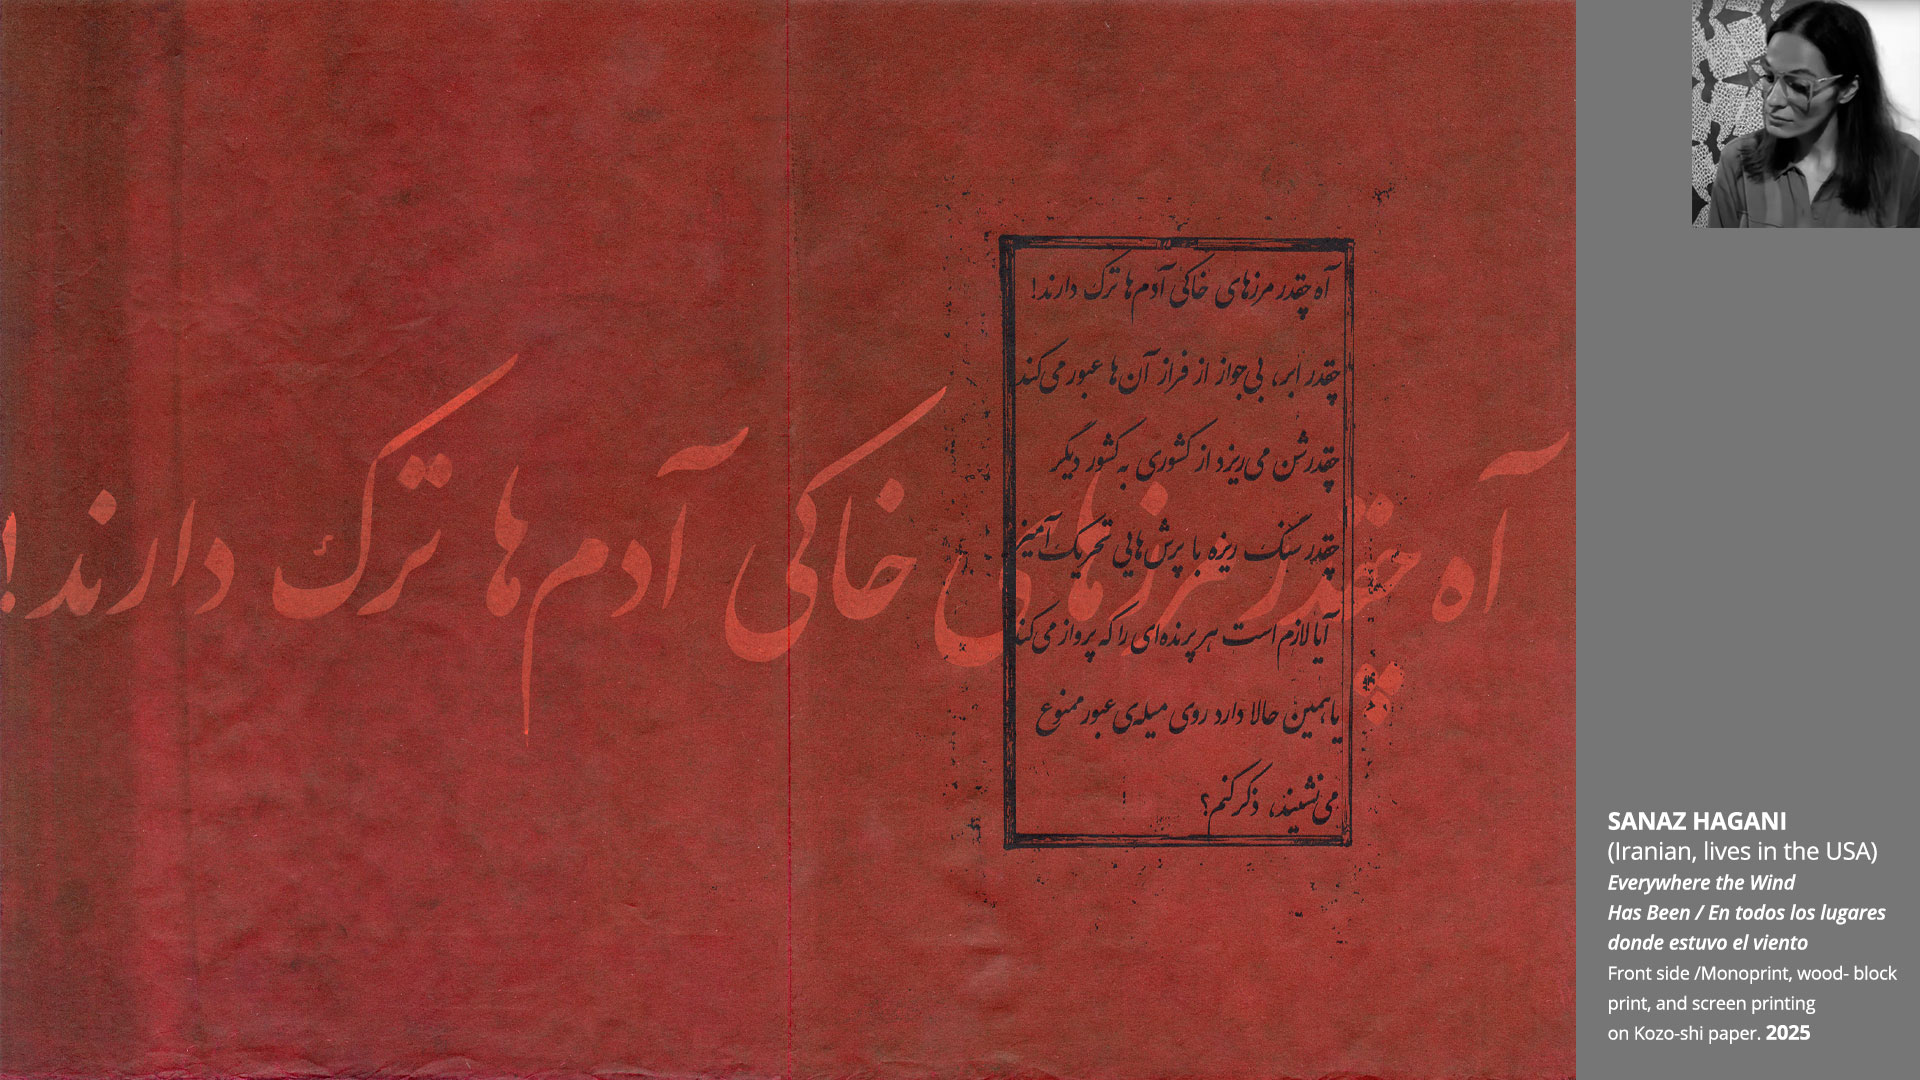 آه چقدر مرزهای خاکی آدم‌ها ترک دارند!
آه چقدر مرزهای خاکی آدم‌ها ترک دارند!
چقدر ابر، بی‌جواز از فراز آن‌ها عبور می‌کند
چقدر شن می‌ریزد از کشوری به کشور دیگر
چقدر سنگ ریزه با پرش‌هایی تحریک‌آمیز
آیا لازم است هر پرنده‌ای را که پرواز می‌کند
یا همین حالا دارد روی میله‌ی عبور ممنوع
می‌نشیند، ذکر کنم؟
SANAZ HAGANI
(Iranian, lives in the USA)
Everywhere the Wind
Has Been / En todos los lugares
donde estuvo el viento
Front side /Monoprint, wood- block
print, and screen printing
on Kozo-shi paper. 2025